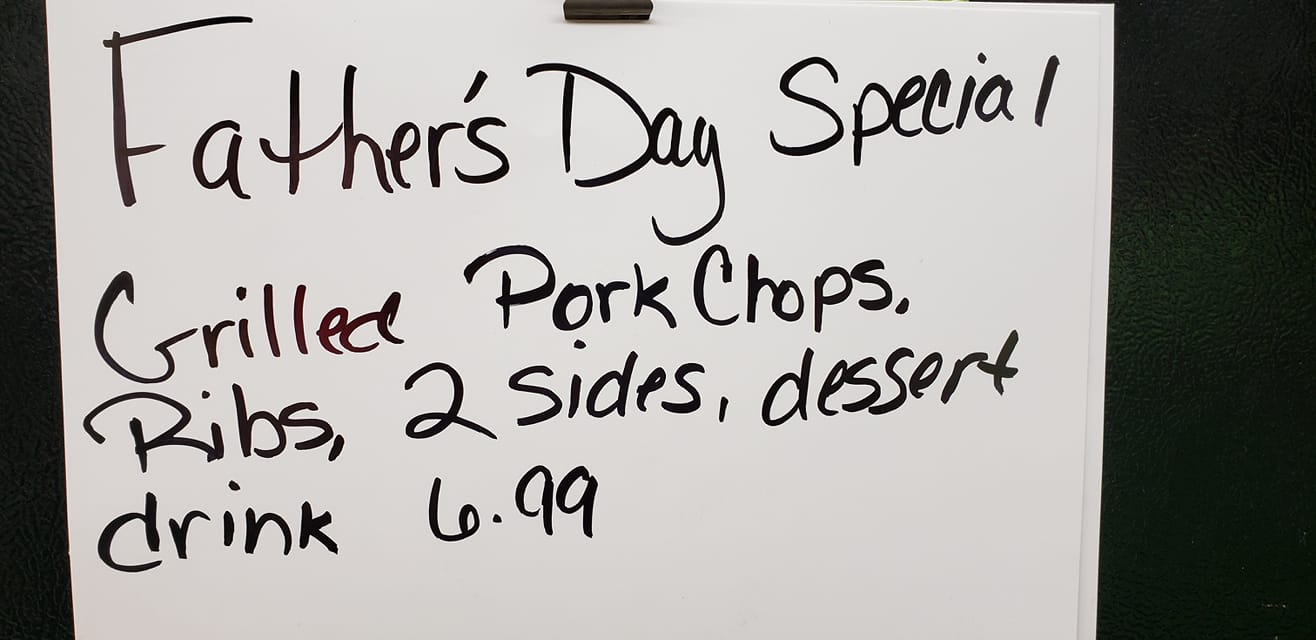 Father's Day Special
Grilled Pork Chops.
Ribs, 2 sides, dessert
drink 6.99